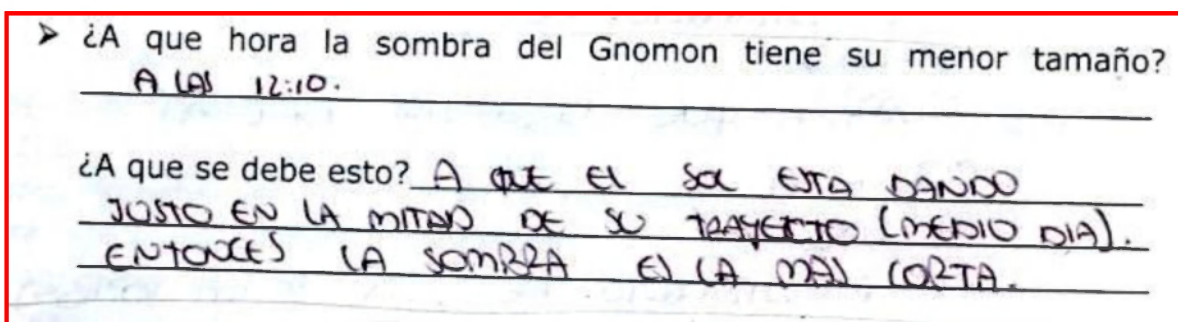 ➤ ¿A que hora la sombra del Gnomon tiene su menor tamaño?
A LAS 12:10.
¿A que se debe esto? A QUE EL SOL ESTA DANDO
JUSTO EN LA MITAD DE SU TRAYECTO (MEDIO DIA).
ENTONCES LA SOMBRA ES LA MAS CORTA.